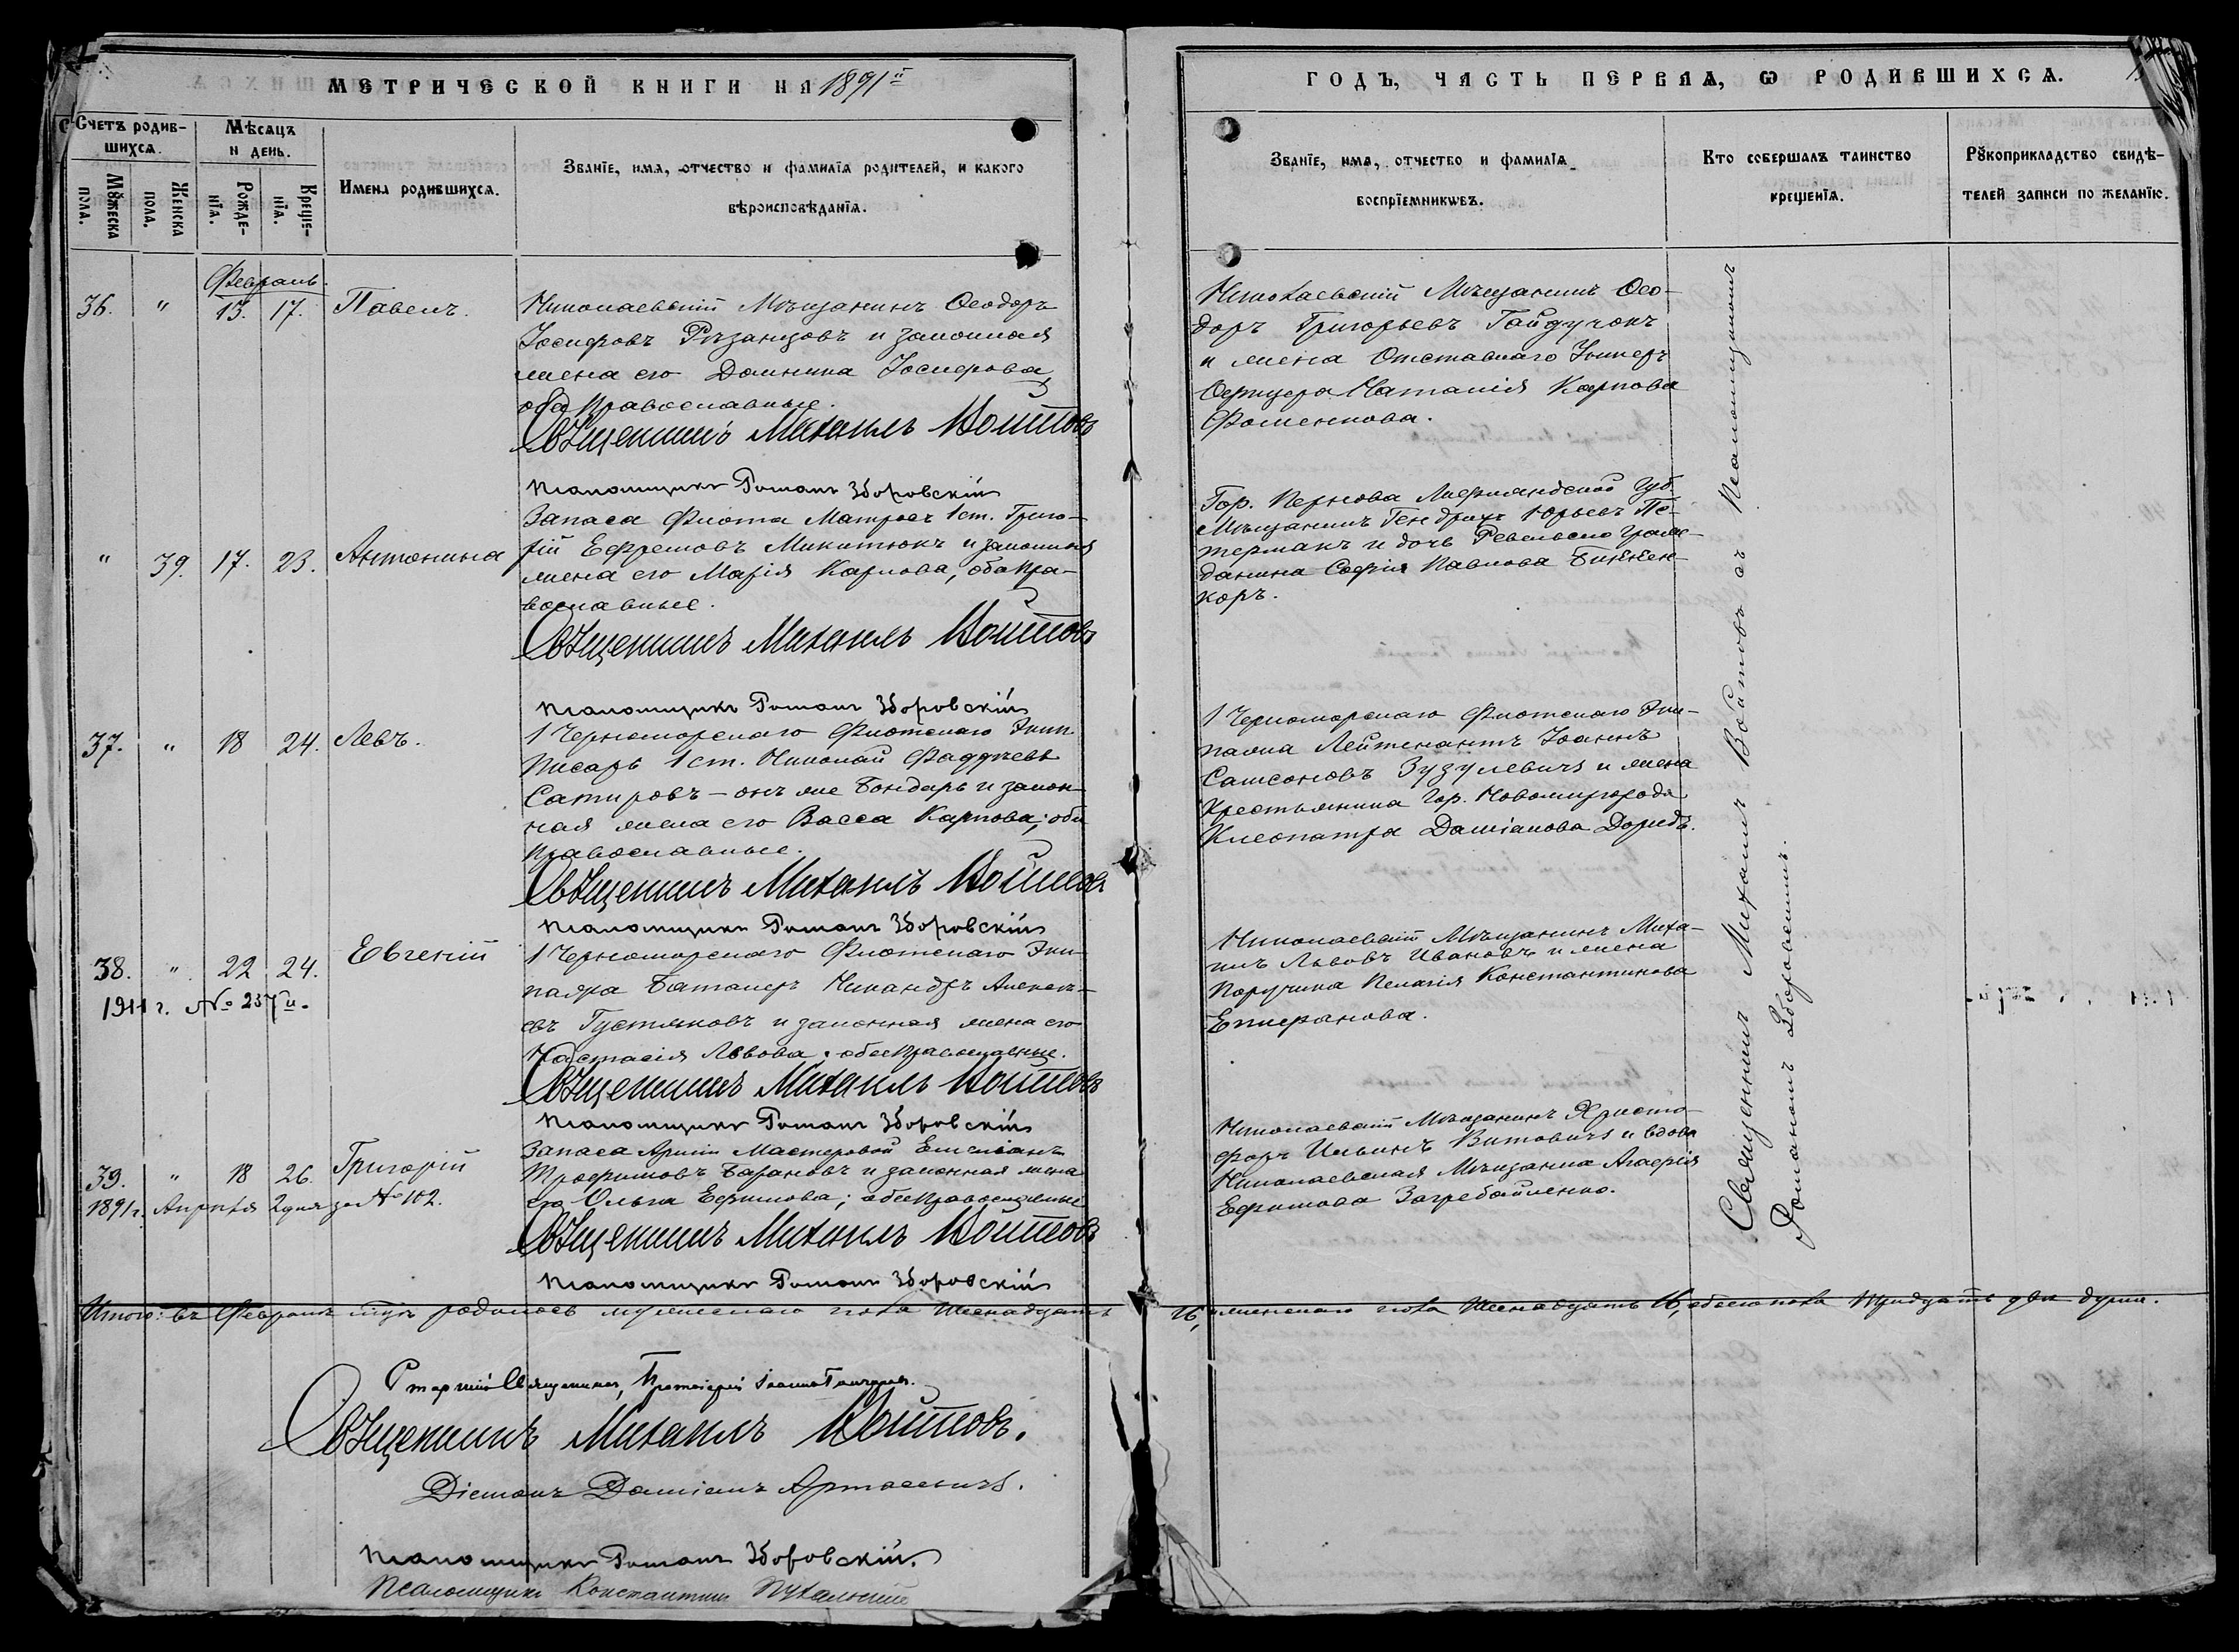 МЕТРИЧЕСКОЙ КНИГИ НА 1891й
Счетъ родив-
шихся.
Мѣсяцъ
и день.
Мужеска
пола.
Женска
пола.
Рожде-
нія.
Креще-
нія.
Имена родившихся.
Званіе, имя, отчество и фамилія родителей, и какого
вѣроисповѣданія.
Февраль.
36. " 13. 17. Павелъ.
Николаевскій Мѣщанинъ Ѳеодоръ
Іосифовъ Рѣзанцовъ и законная
жена его Домнина Іосифова,
оба православные.
Священникъ Михаилъ Войтовъ
Псаломщикъ Романъ Зборовскій
" 39. 17. 23. Антонина
Запаса Флота Матросъ 1 ст. Григо-
рій Ефремовъ Микитюкъ и законная
жена его Марія Карпова, оба пра-
вославные.
Священникъ Михаилъ Войтовъ
Псаломщикъ Романъ Зборовскій
37. " 18 24. Левъ.
1 Черноморскаго Флотскаго Экип.
Писарь 1 ст. Николай Фаддѣевъ
Сатировъ – онъ же Бондарь и закон-
ная жена его Васса Карпова; оба
православные.
Священникъ Михаилъ Войтовъ
Псаломщикъ Романъ Зборовскій
38. " 22 24. Евгеній
1911 г. № 237й.
1 Черноморскаго Флотскаго Эки-
пажа Баталеръ Никандръ Алексѣ-
евъ Густяковъ и законная жена его
Настасія Львова; обое православные.
Священникъ Михаилъ Войтовъ
Псаломщикъ Романъ Зборовскій
39. " 18 26. Григорій
1891 г. Апрѣля 2 дня за № 102.
Запаса Арміи Мастеровой Емеліанъ
Трофимовъ Барановъ и законная жена
его Ольга Ефимова; обое православные
Священникъ Михаилъ Войтовъ
Псаломщикъ Романъ Зборовскій
Итого: въ Февралѣ м-цѣ родилось мужескаго пола шеснадцать
Старшій Священникъ, Протоіерей Іоаннъ
Священникъ Михаилъ Войтовъ.
Діаконъ Даміанъ
Псаломщикъ Романъ Зборовскій.
Псаломщикъ Константинъ
ГОДЪ, ЧАСТЬ ПЕРВАЯ, Ѡ РОДИВШИХСЯ.
Званіе, имя, отчество и фамилія
воспріемниковъ.
Кто совершалъ таинство
крещенія.
Рукоприкладство свидѣ-
телей записи по желанію.
Николаевскій Мѣщанинъ Ѳео-
доръ Григорьевъ Гайдучокъ
и жена Отставнаго Унтеръ
Офицера Наталія Карпова
Фоменкова.
Гор. Пернова Лифляндской Губ.
Мѣщанинъ Гендрихъ Юрьевъ Пе-
терманъ и дочь Ревельскаго Граж-
данина Софія Павлова
коръ.
1 Черноморскаго Флотскаго Эки-
пажа Лейтенантъ Іоаннъ
Самсоновъ Зузулевичъ и жена
Крестьянина Гор. Новомиргорода
Клеопатра Даміанова
Николаевскій Мѣщанинъ Миха-
илъ Львовъ Ивановъ и жена
Поручика Пелагія Константинова
Епифанова.
Николаевскій Мѣщанинъ Христо-
форъ Ильинъ Витовичъ и вдова
Николаевская Мѣщанка Агафія
Ефимова Загребайленко.
Священникъ Михаилъ Войтовъ съ Псаломщикомъ
Романомъ Зборовскимъ.
16, женскаго пола шеснадцать 16, обоего пола тридцать двѣ души.